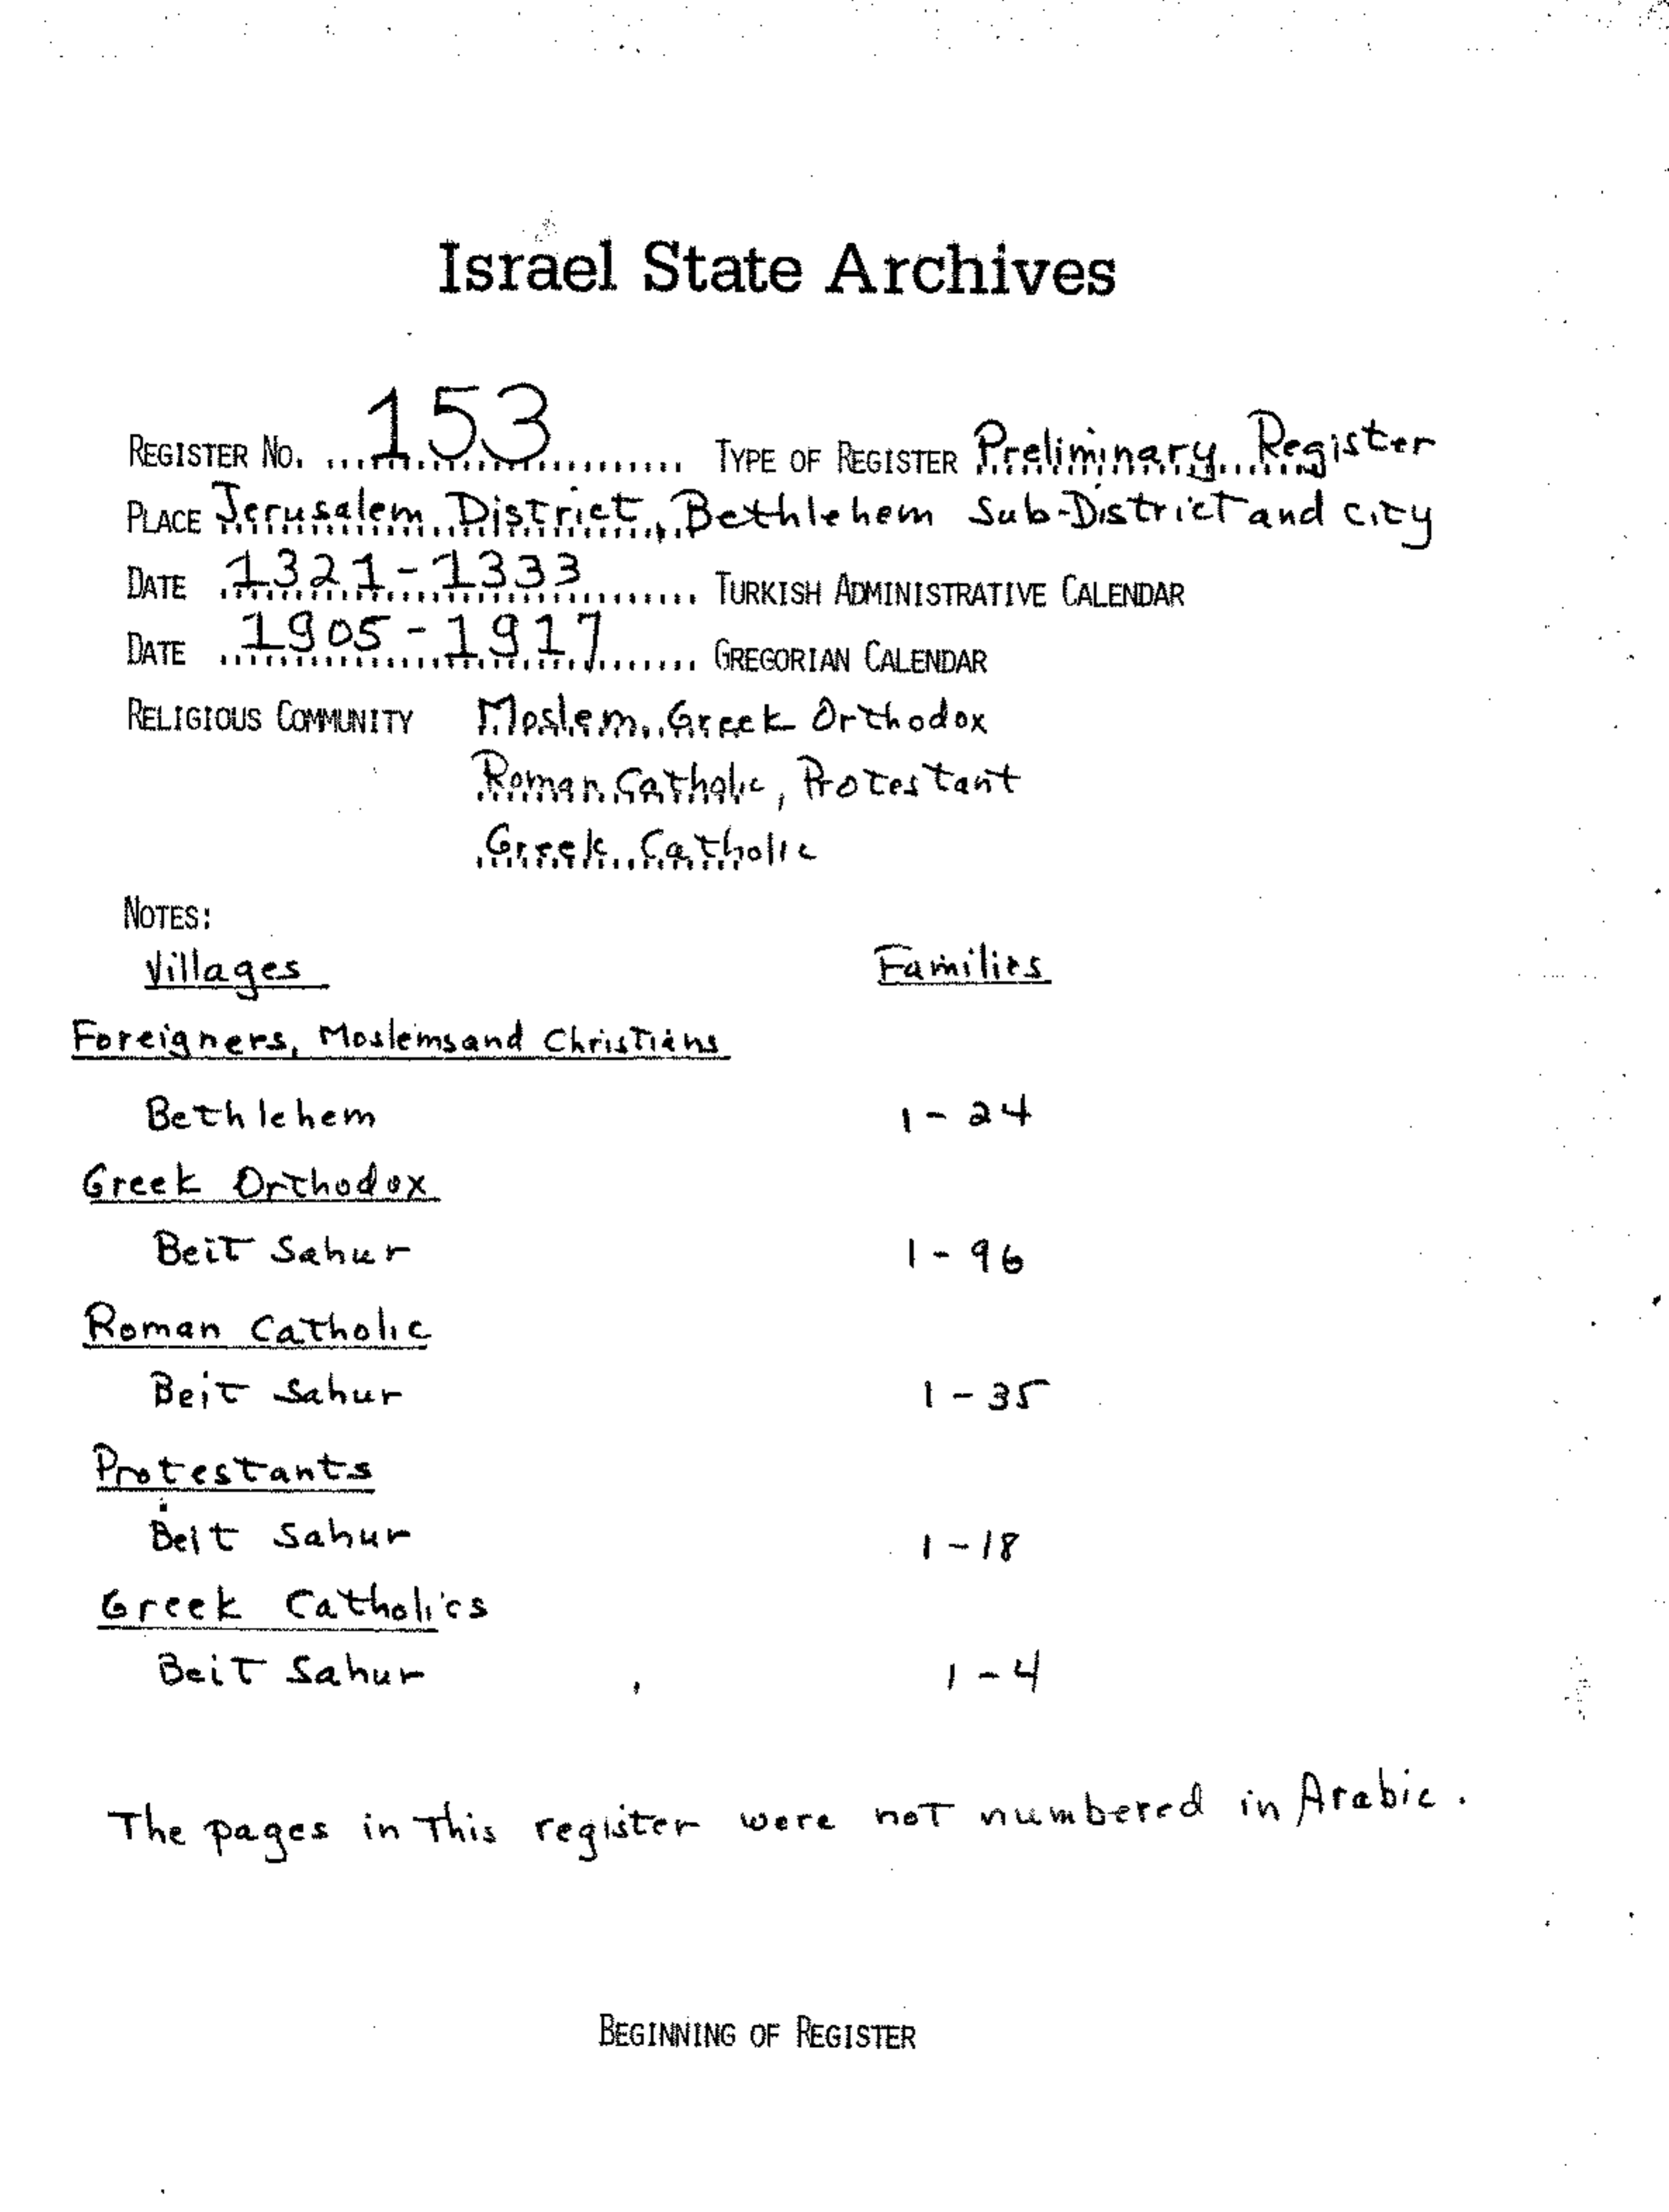 Israel State Archives
REGISTER No. 153 TYPE OF REGISTER Preliminary Register
PLACE Jerusalem District, Bethlehem Sub-District and City
DATE 1321-1333 TURKISH ADMINISTRATIVE CALENDAR
DATE 1905-1917 GREGORIAN CALENDAR
RELIGIOUS COMMUNITY Moslem, Greek Orthodox
Roman Catholic, Protestant
Greek Catholic
NOTES:
Villages Families
Foreigners, Moslems and Christians
Bethlehem 1-24
Greek Orthodox
Beit Sahur 1-96
Roman Catholic
Beit Sahur 1-35
Protestants
Beit Sahur 1-18
Greek Catholics
Beit Sahur 1-4
The pages in This register were not numbered in Arabic.
BEGINNING OF REGISTER